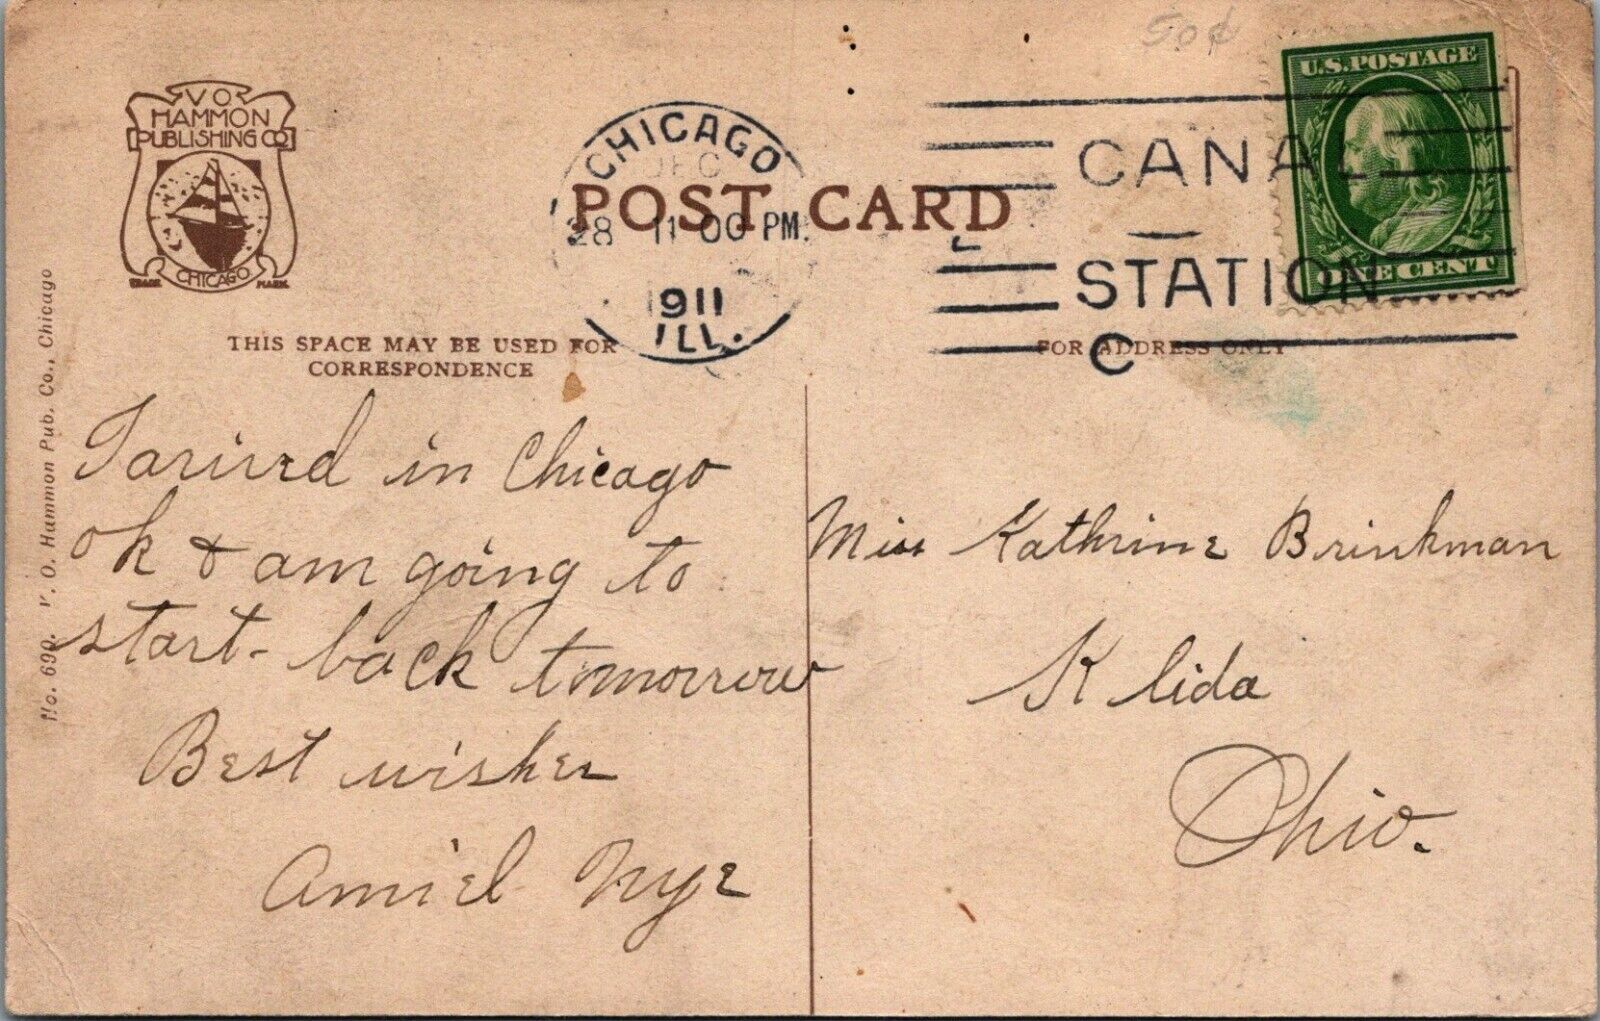 50¢
VO
HAMMON
PUBLISHING CO
CHICAGO
TRADE MARK
CHICAGO
DEC
28 11 00 PM.
1911
ILL.
POST CARD
CANAL
STATION
C
U.S. POSTAGE
ONE CENT
THIS SPACE MAY BE USED FOR
CORRESPONDENCE
FOR ADDRESS ONLY
No. 690. V. O. Hammon Pub. Co., Chicago
I arived in Chicago
ok & am going to
start - back tomorrow
Best wishes
Amiel Nye
Miss Kathrine Brinkman
Klida
Ohio.